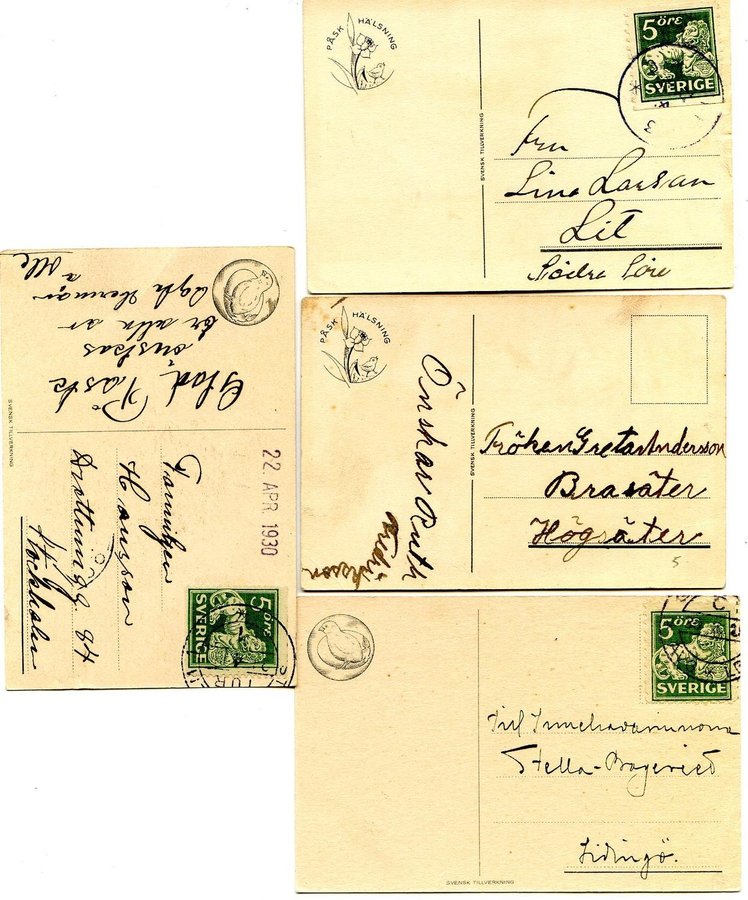 PÅSK HÄLSNING
SVENSK TILLVERKNING
5 öre
SVERIGE
Fru
Lina Larsson
Lit
Södra Söre
Glad Påsk
önskas
er alla av
Herman
Olle
SVENSK TILLVERKNING
22. APR 1930
Familjen
Hansson
Drottningg. 84
Stockholm
5 öre
SVERIGE
PÅSK HÄLSNING
Önskar Ruth
Fredriksson
SVENSK TILLVERKNING
Fröken Greta Andersson
Brasäter
Högsäter
5
5 öre
SVERIGE
Till Innehavarinnorna
Stella-Bageriet
Lidingö.
SVENSK TILLVERKNING